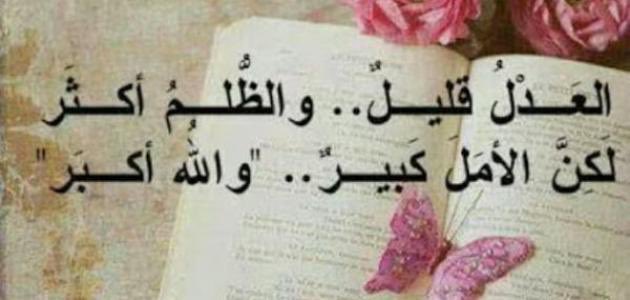 العَـدْلُ قليـلٌ.. والظُّلـمُ أكـثَـر
لَكِنَّ الأمَلَ كَبِيـرٌ.. "واللهُ أكـبَـر"